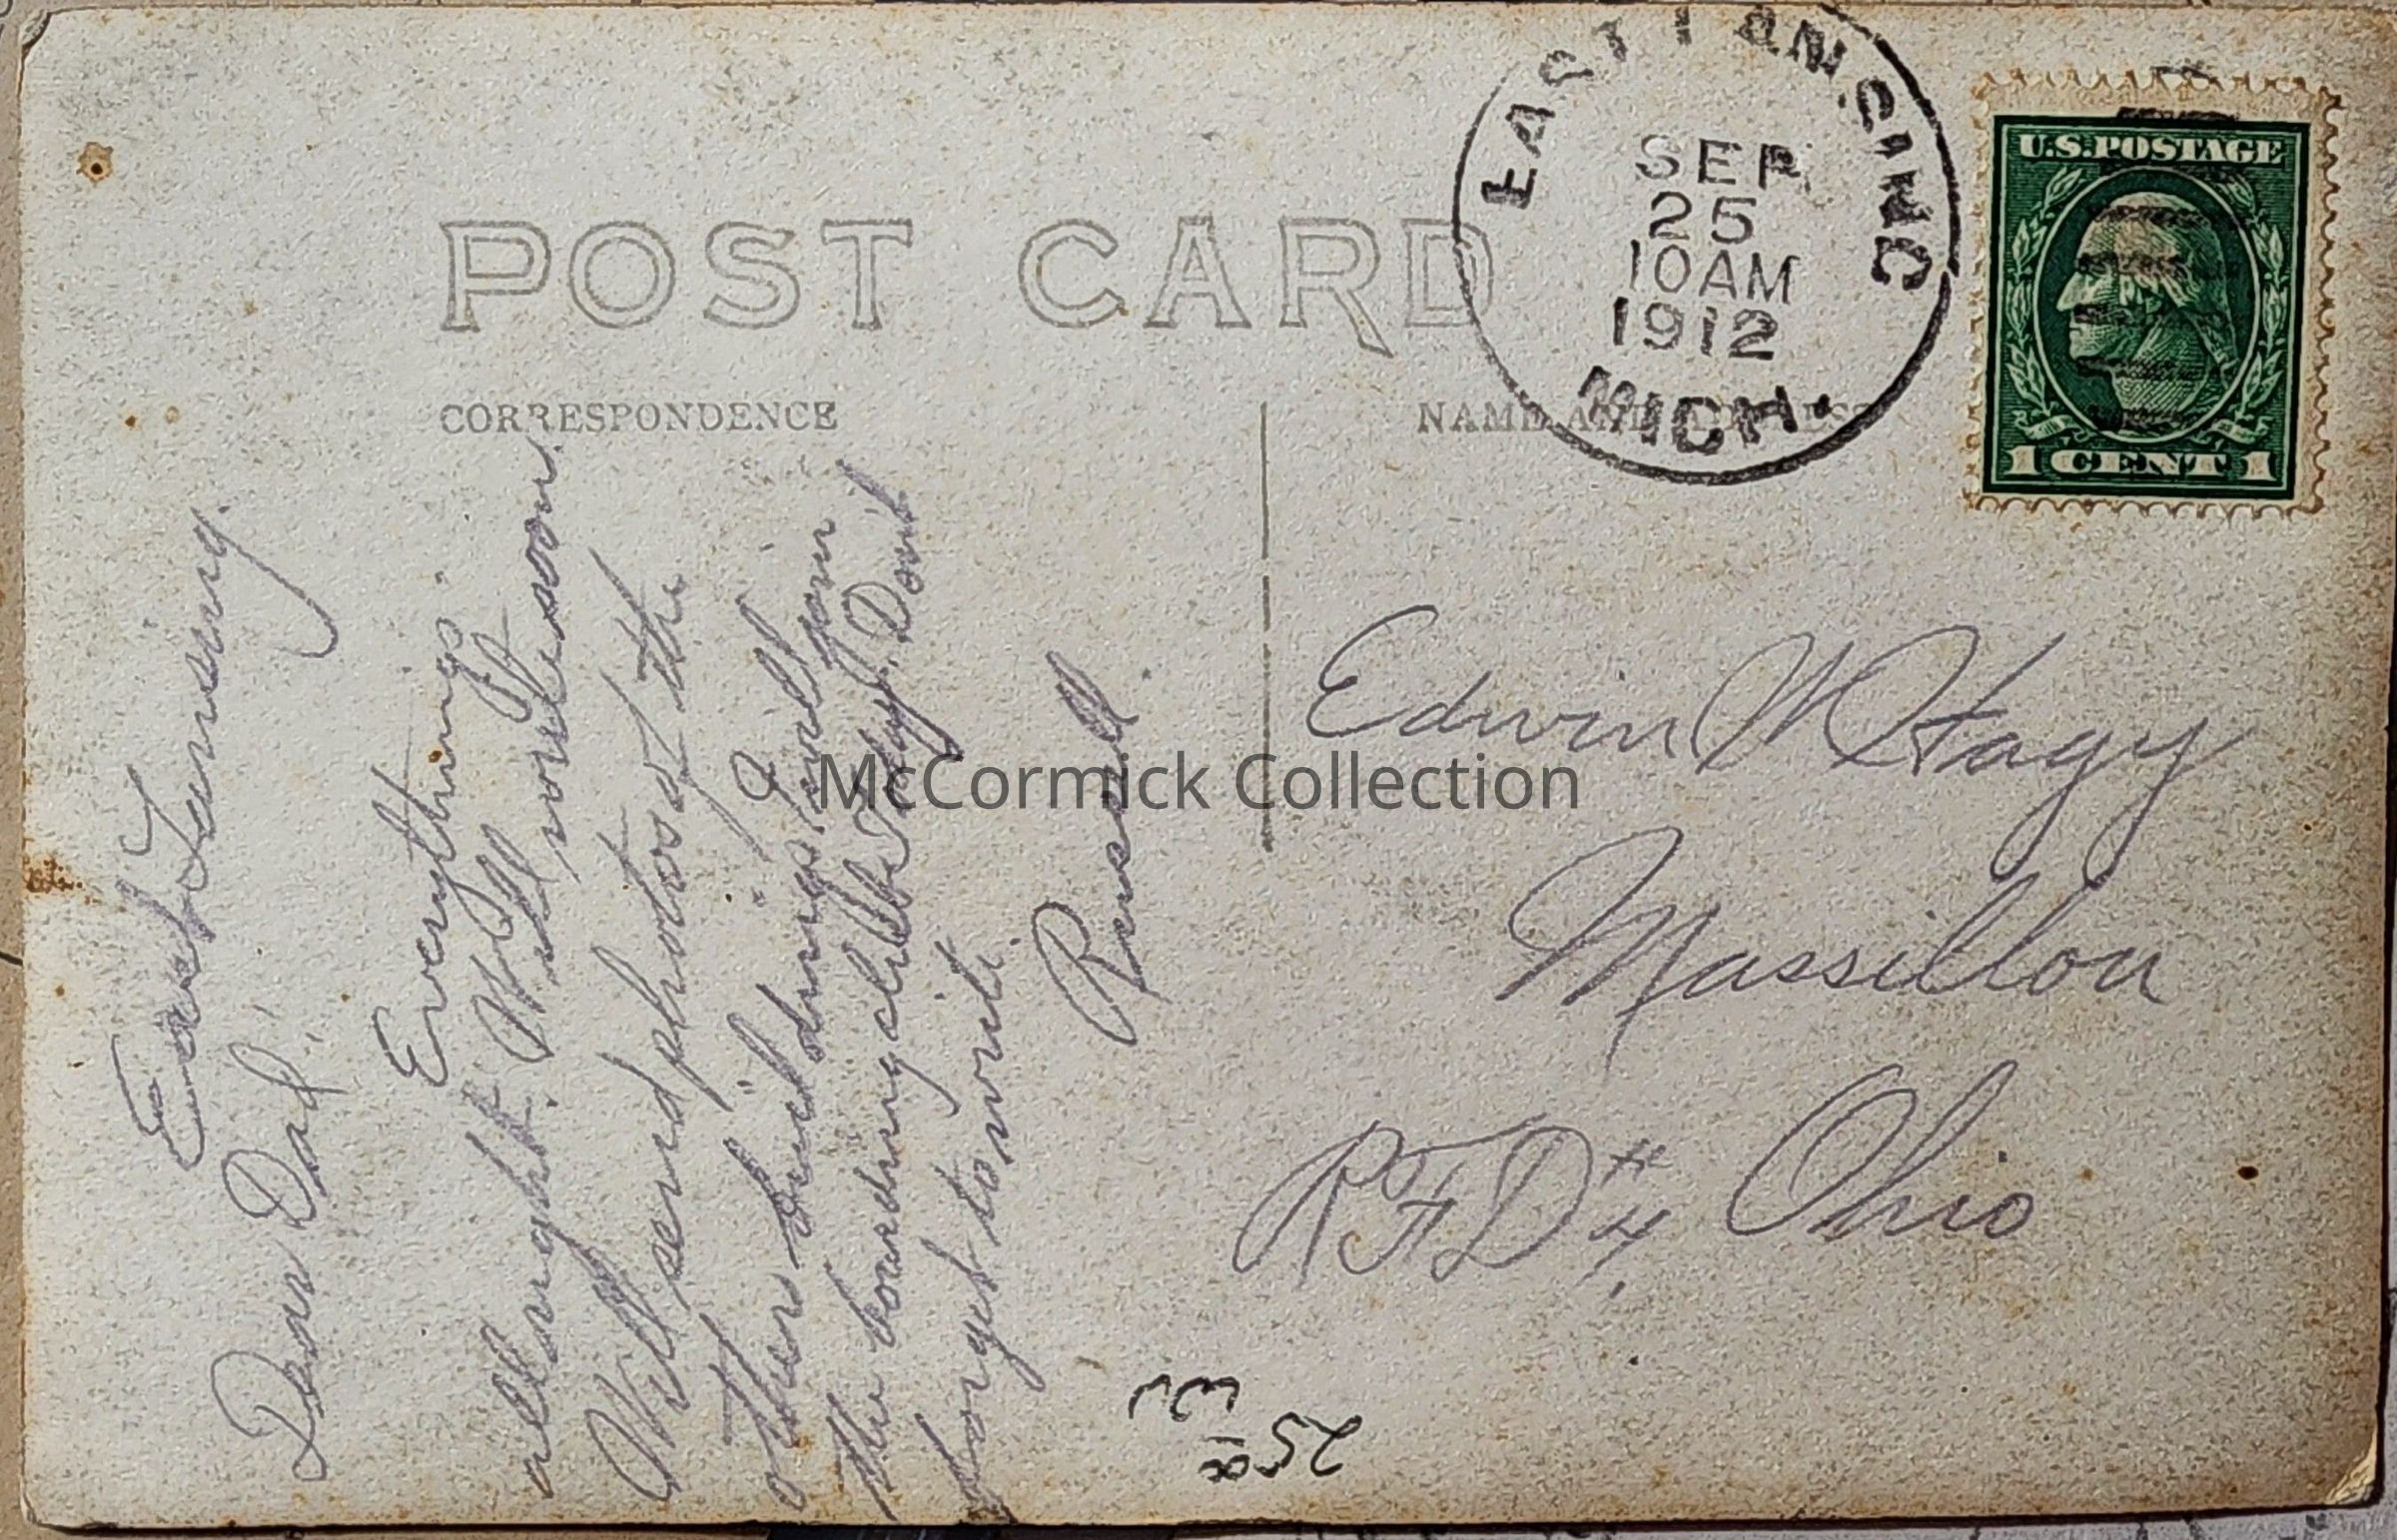 POST CARD
CORRESPONDENCE
NAME AND ADDRESS
EAST LANSING
SEP
25
10AM
1912
MICH.
U.S. POSTAGE
1 CENT 1
East Lansing.
Dear Dad:
Everythings
all right. Will write soon.
Will send photos of the
other buildings. I
the boarding club today. Don't
forget to write.
Russell
Edwin W Hagy
Massillon
RFD # 4 Ohio
McCormick Collection